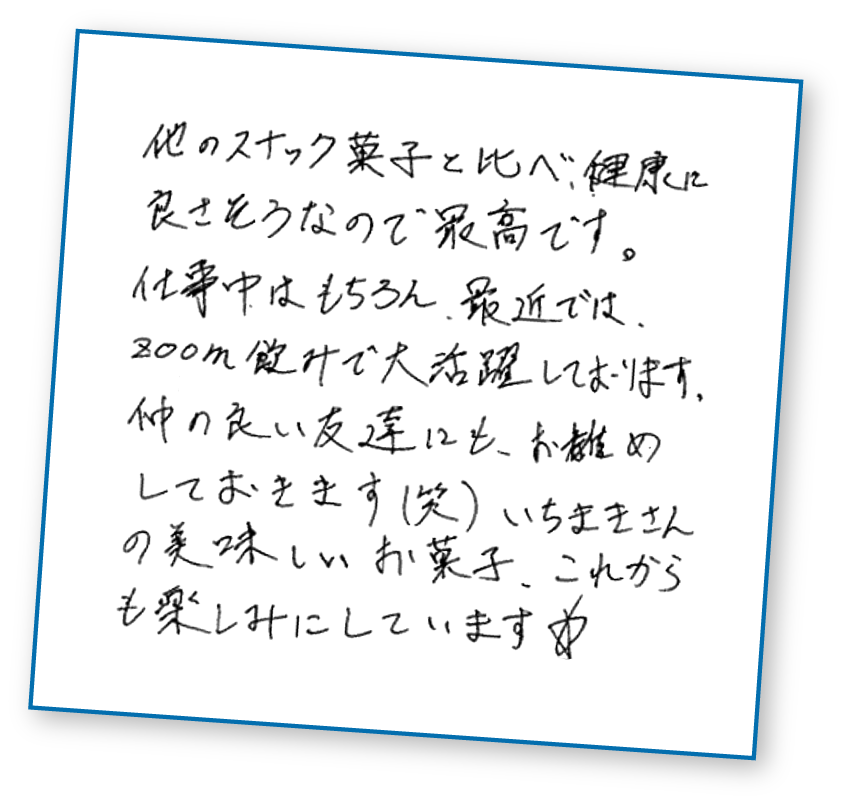 他のスナック菓子と比べ、健康に
良さそうなので最高です。
仕事中はもちろん、最近では、
zoom飲みで大活躍しております。
仲の良い友達にも、お雑め
しておきます(笑)いちまきさん
の美味しいお菓子、これから
も楽しみにしています